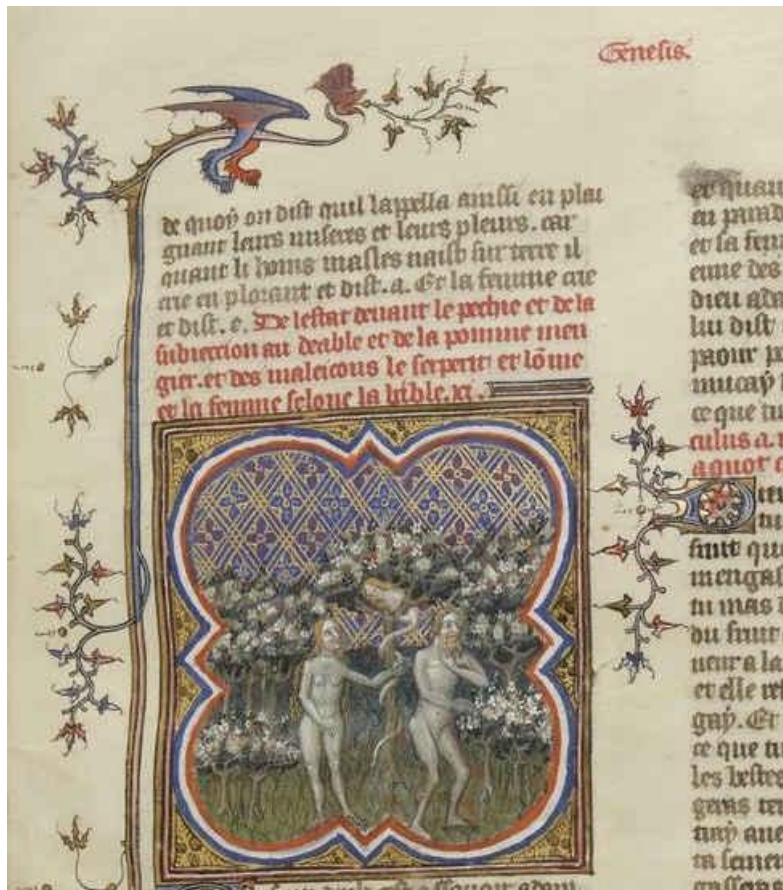 Genesis.
de quoy on dist quil lappella ainssi en plai
gnant leurs miseres et leurs pleurs. car
quant li homs masles naist sur terre il
crie en plorant et dist. a. Et la femme crie
et dist. e. De lestat deuant le pechie et de la
subiection au deable et de la pomme men
gier. et des maleicons le serpent et lōme
et la femme selonc la bible. xi.
et quan
au parad
et sa fem
dieu ad
lui dist.
paour
mucay
ce que tu
culus a.
a quot
fruit que
mengas
tu mas
du fruit
et elle
gay. Et
ce que tu
les bestes